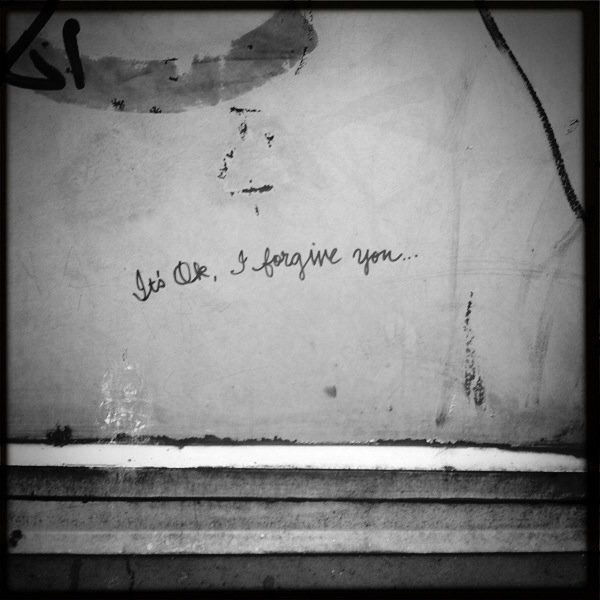 It's Ok, I forgive you...